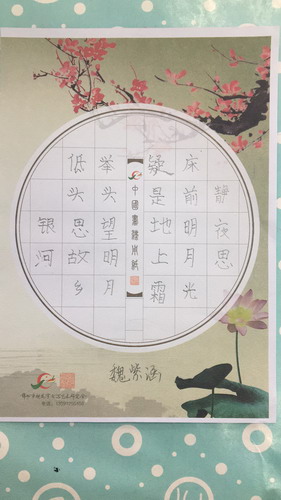 静夜思
床前明月光
疑是地上霜
中國書
举头望明月
低头思故乡
银河
魏紫涵